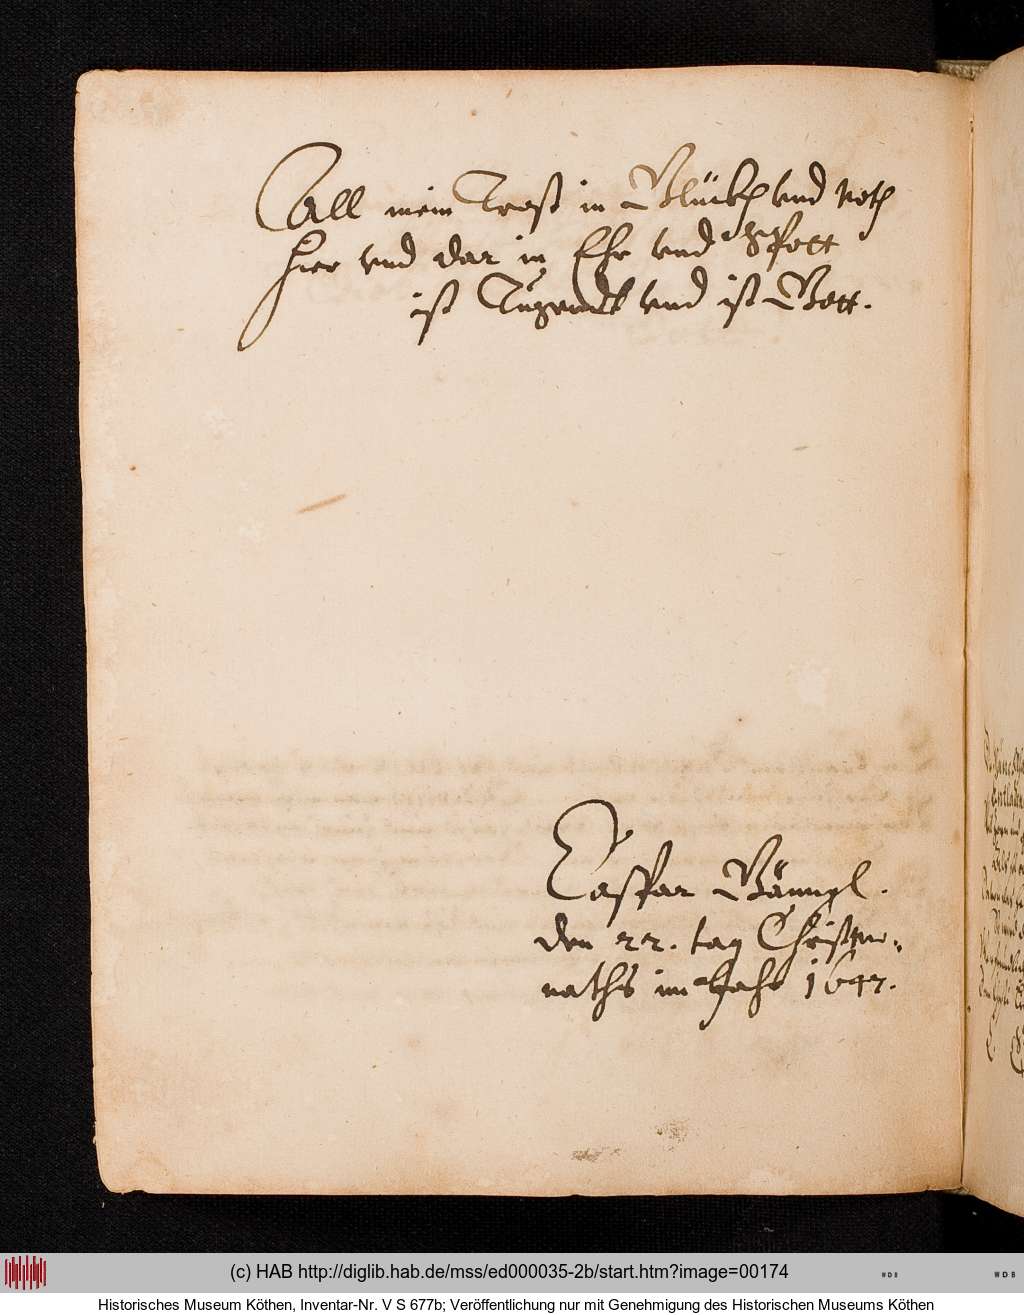 All mein Trost in Glück und noth
Hier und dar in Ehr und Spott
ist Tugendt und ist Gott.
Caspar
den 22. tag Christmo-
naths im Jahr 1647.
(c) HAB http://diglib.hab.de/mss/ed000035-2b/start.htm?image=00174
WDB
WDB
Historisches Museum Köthen, Inventar-Nr. V S 677b; Veröffentlichung nur mit Genehmigung des Historischen Museums Köthen